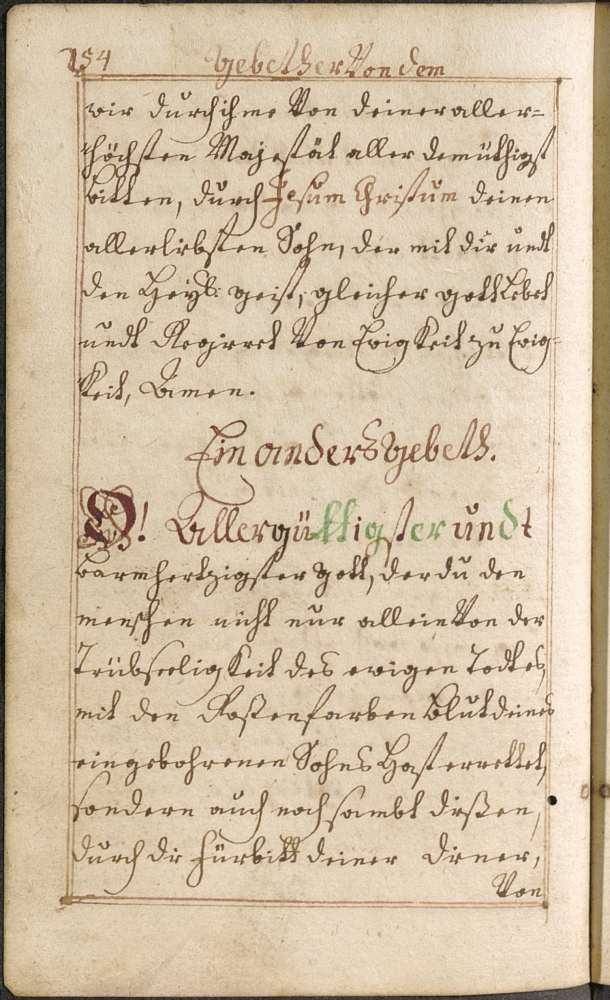 154 Gebether Von dem
wir durch ihme Von deiner aller=
höchsten Majestät aller demüthigst
bitten, durch Jesum Christum deinen
allerliebsten Sohn, der mit dir undt
den Heyl: geist, gleicher gott Lebet
undt Regirret Von Ewigkeit zu Ewig=
keit, Amen.
Ein anders gebeth.
O! Allergüttigster undt
barmhertzigster gott, der du den
menschen nicht nur allein Von der
Trübseeligkeit des ewigen Todtes,
mit den Roßenfarben Blut deines
eingebohrenen Sohns Hast errettet,
sondern auch noch sambt dißen,
durch die fürbitt deiner diener,
Von